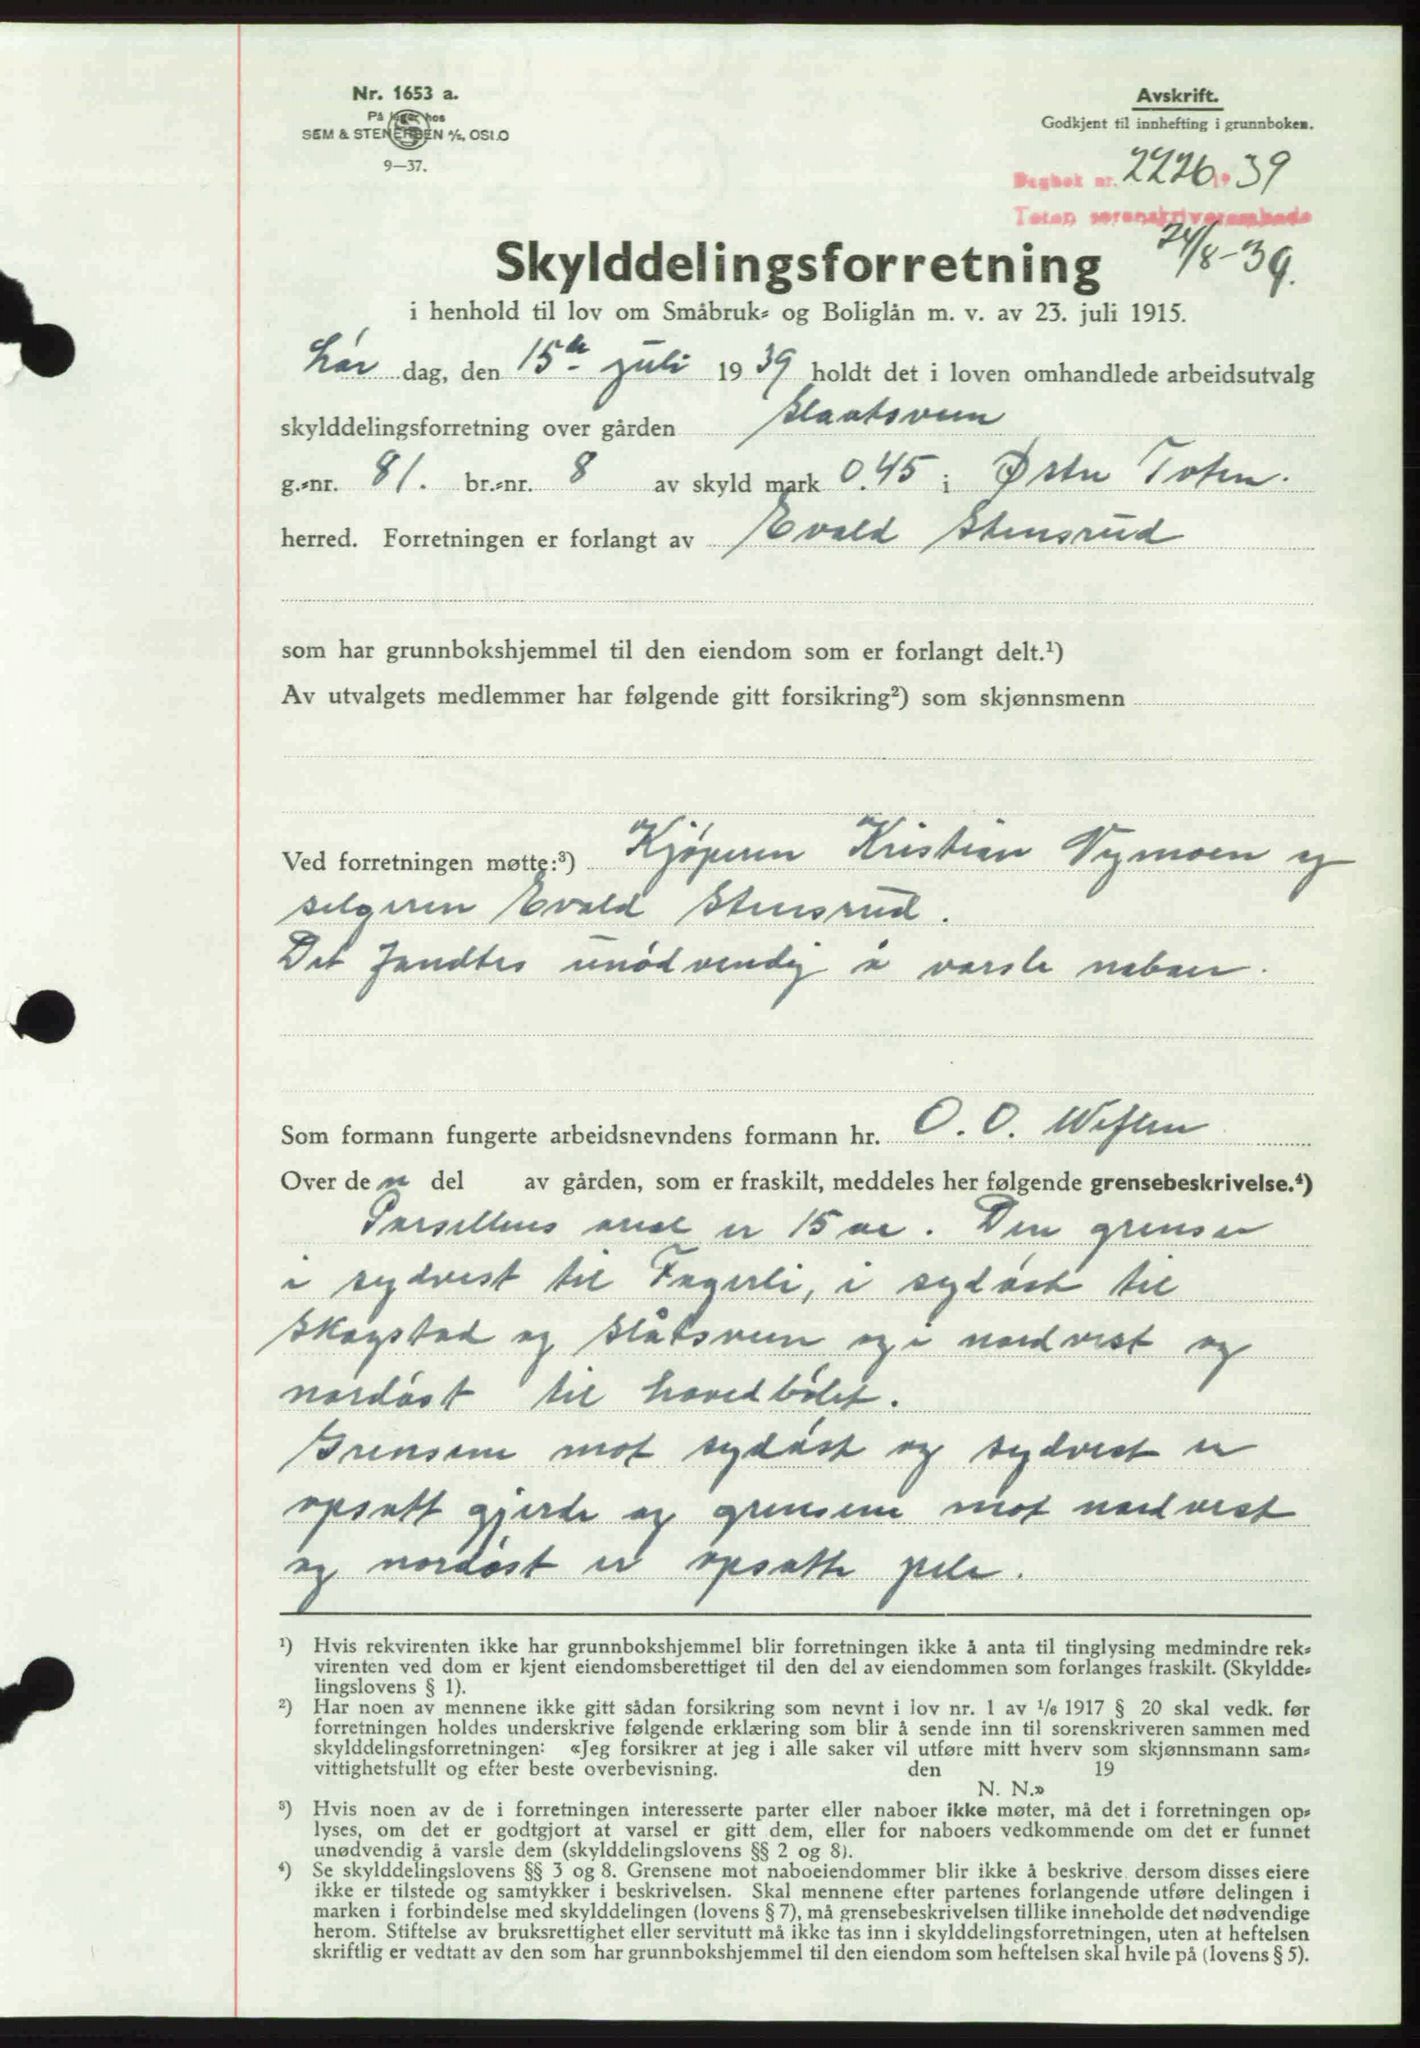 Nr. 1653 a.
På lager hos
SEM & STENERSEN A/S, OSLO
9—37.
Avskrift.
Godkjent til innhefting i grunnboken.
Dagbok nr. 2226 19 39
Toten sorenskriverembede
24/8-39.
Skylddelingsforretning
i henhold til lov om Småbruk- og Boliglån m. v. av 23. juli 1915.
Lør dag, den 15de juli 1939 holdt det i loven omhandlede arbeidsutvalg
skylddelingsforretning over gården Slaatsveen
g.-nr. 81. br.-nr. 8 av skyld mark 0.45 i Østre Toten.
herred. Forretningen er forlangt av Evald Stensrud
som har grunnbokshjemmel til den eiendom som er forlangt delt.¹)
Av utvalgets medlemmer har følgende gitt forsikring²) som skjønnsmenn
Ved forretningen møtte:³) Kjøperen Kristian Nymoen og
selgeren Evald Stensrud.
Det fandtes unødvendig å varsle naboer.
Som formann fungerte arbeidsnevndens formann hr. O. O. Weflen
Over den del av gården, som er fraskilt, meddeles her følgende grensebeskrivelse.⁴)
Parsellens areal er 15 ar. Den grenser
i sydvest til Fagerli, i sydøst til
Skogstad og Slåtsveen og i nordvest og
nordøst til hovedbølet.
Grensene mot sydøst og sydvest er
opsatt gjerde og grensene mot nordvest
og nordøst er opsatte pele.
¹) Hvis rekvirenten ikke har grunnbokshjemmel blir forretningen ikke å anta til tinglysing medmindre rek-
virenten ved dom er kjent eiendomsberettiget til den del av eiendommen som forlanges fraskilt. (Skyldde-
lingslovens § 1).
²) Har noen av mennene ikke gitt sådan forsikring som nevnt i lov nr. 1 av 1/6 1917 § 20 skal vedk. før
forretningen holdes underskrive følgende erklæring som blir å sende inn til sorenskriveren sammen med
skylddelingsforretningen: «Jeg forsikrer at jeg i alle saker vil utføre mitt hverv som skjønnsmann sam-
vittighetsfullt og efter beste overbevisning. den 19
N. N.»
³) Hvis noen av de i forretningen interesserte parter eller naboer ikke møter, må det i forretningen op-
lyses, om det er godtgjort at varsel er gitt dem, eller for naboers vedkommende om det er funnet
unødvendig å varsle dem (skylddelingslovens §§ 2 og 8).
⁴) Se skylddelingslovens §§ 3 og 8. Grensene mot naboeiendommer blir ikke å beskrive, dersom disses eiere
ikke er tilstede og samtykker i beskrivelsen. Skal mennene efter partenes forlangende utføre delingen i
marken i forbindelse med skylddelingen (lovens § 7), må grensebeskrivelsen tillike inneholde det nødvendige
herom. Stiftelse av bruksrettighet eller servitutt må ikke tas inn i skylddelingsforretningen, uten at heftelsen
skriftlig er vedtatt av den som har grunnbokshjemmel til den eiendom som heftelsen skal hvile på (lovens § 5).